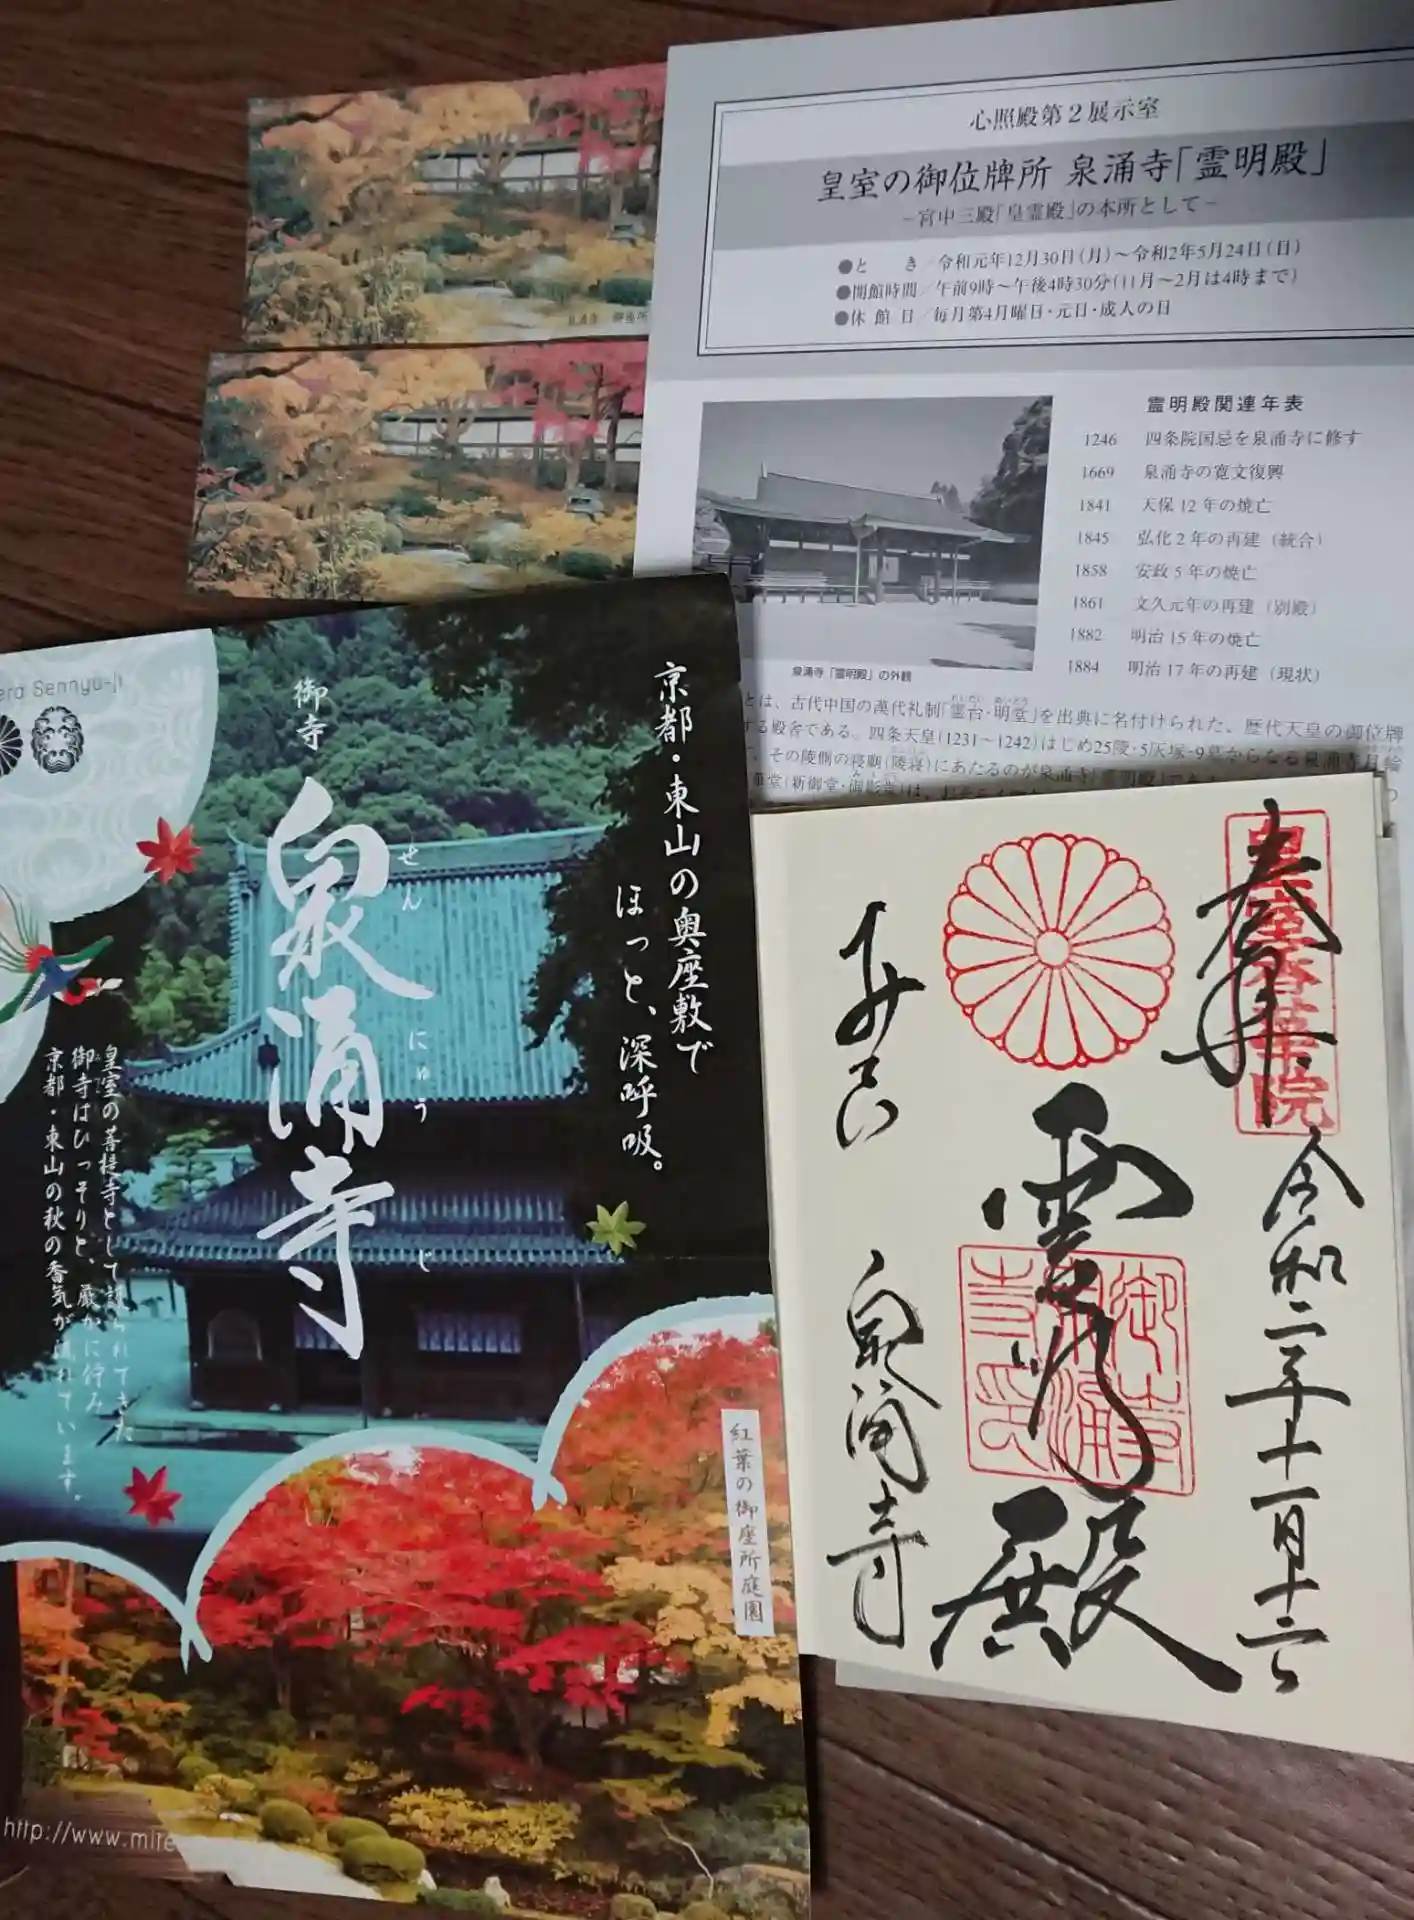 心照殿第2展示室
皇室の御位牌所 泉涌寺「霊明殿」
－宮中三殿「皇霊殿」の本所として－
●と き／令和元年12月30日(月)～令和2年5月24日(日)
●開館時間／午前9時～午後4時30分(11月～2月は4時まで)
●休館日／毎月第4月曜日・元日・成人の日
霊明殿関連年表
1246 四条院国忌を泉涌寺に修す
1669 泉涌寺の寛文復興
1841 天保12年の焼亡
1845 弘化2年の再建（統合）
1858 安政5年の焼亡
1861 文久元年の再建（別殿）
1882 明治15年の焼亡
1884 明治17年の再建（現状）
泉涌寺「霊明殿」の外観
とは、古代中国の漢代礼制「霊台・明堂」を出典に名付けられた、歴代天皇の御位牌
する殿舎である。四条天皇(1231～1242)はじめ25陵・5灰塚・9墓からなる泉涌寺月輪
、その陵側の寝廟(陵寝)にあたるのが泉涌寺「霊明殿」
泉涌寺 御座所
era Sennyu-ji
京都・東山の奥座敷で
ほっと、深呼吸。
御寺
泉涌寺
せんにゅうじ
皇室の菩提寺として語られてきた
御寺はひっそりと、厳かに佇み
京都・東山の秋の香気が流れています。
紅葉の御座所庭園
http://www.mite
奉拝
皇室香華院
令和二年十一月十六日
霊明殿
御寺泉涌寺印
みてら
泉涌寺